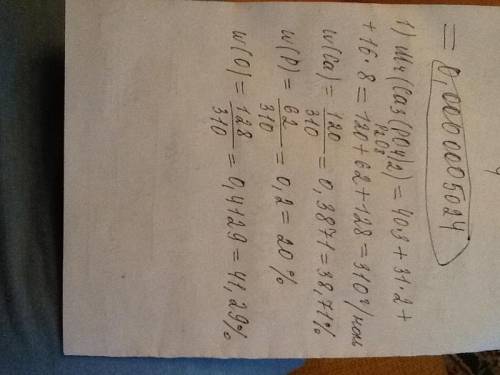 = 0,0000005024
1) Mr(Ca3(PO4)2) = 40·3 + 31·2 +
P2O8
+ 16·8 = 120 + 62 + 128 = 310 г/моль
w(Ca) = 120/310 = 0,3871 = 38,71%
w(P) = 62/310 = 0,2 = 20%
w(O) = 128/310 = 0,4129 = 41,29%